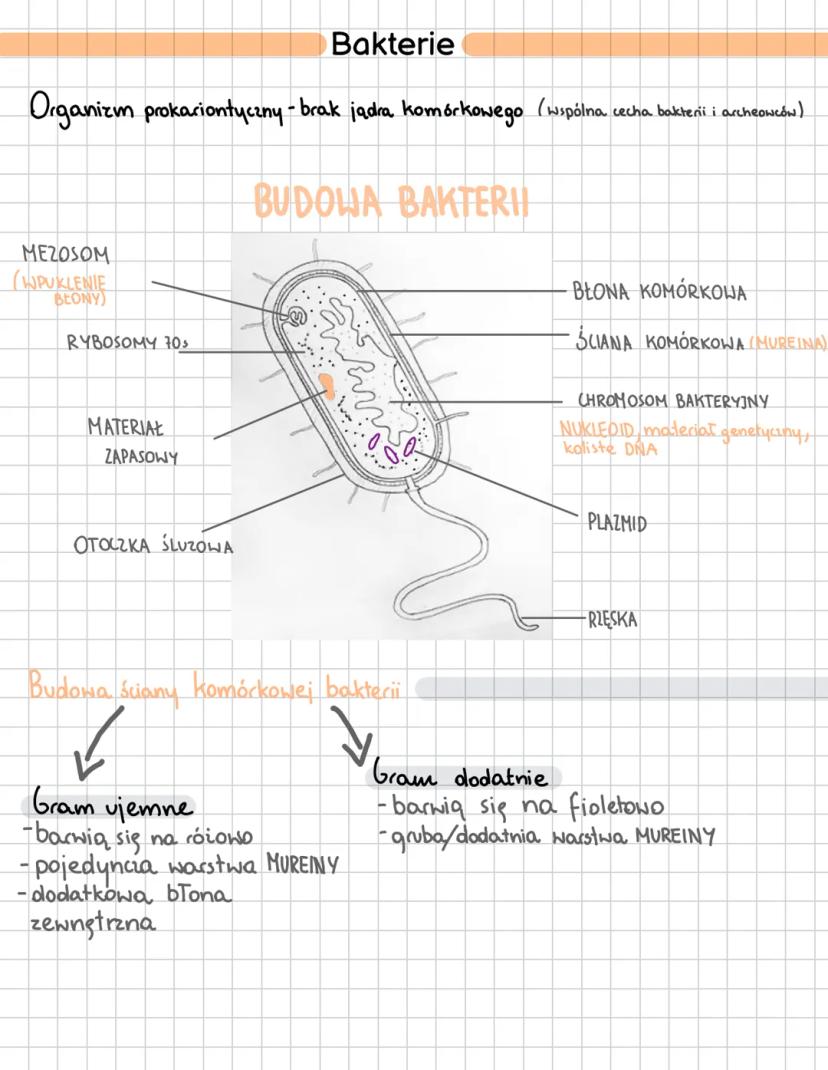 Bakterie
Organizm prokariontyczny - brak jądra komórkowego (wspólna cecha bakterii i archeowców)
BUDOWA BAKTERII
MEZOSOM
(WPUKLENIE
BŁONY)
RYBOSOMY 70s
MATERIAŁ
ZAPASOWY
OTOCZKA ŚLUZOWA
BŁONA KOMÓRKOWA
ŚCIANA KOMÓRKOWA (MUREINA)
CHROMOSOM BAKTERYJNY
NUKLEOID, materiał genetyczny,
koliste DNA
PLAZMID
RZĘSKA
Budowa ściany komórkowej bakterii
Gram ujemne
- barwią się na różowo
- pojedyncza warstwa MUREINY
- dodatkowa błona
zewnętrzna
Gram dodatnie
- barwią się na fioletowo
- gruba/dodatnia warstwa MUREINY